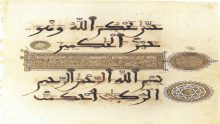 حَتَّىٰ يَحْكُمَ ٱللَّهُ وَهُوَ
خَيْرُ ٱلْحَٰكِمِينَ
بِسْمِ ٱللَّهِ ٱلرَّحْمَٰنِ ٱلرَّحِيمِ
الٓر كِتَٰبٌ أُحْكِمَتْ